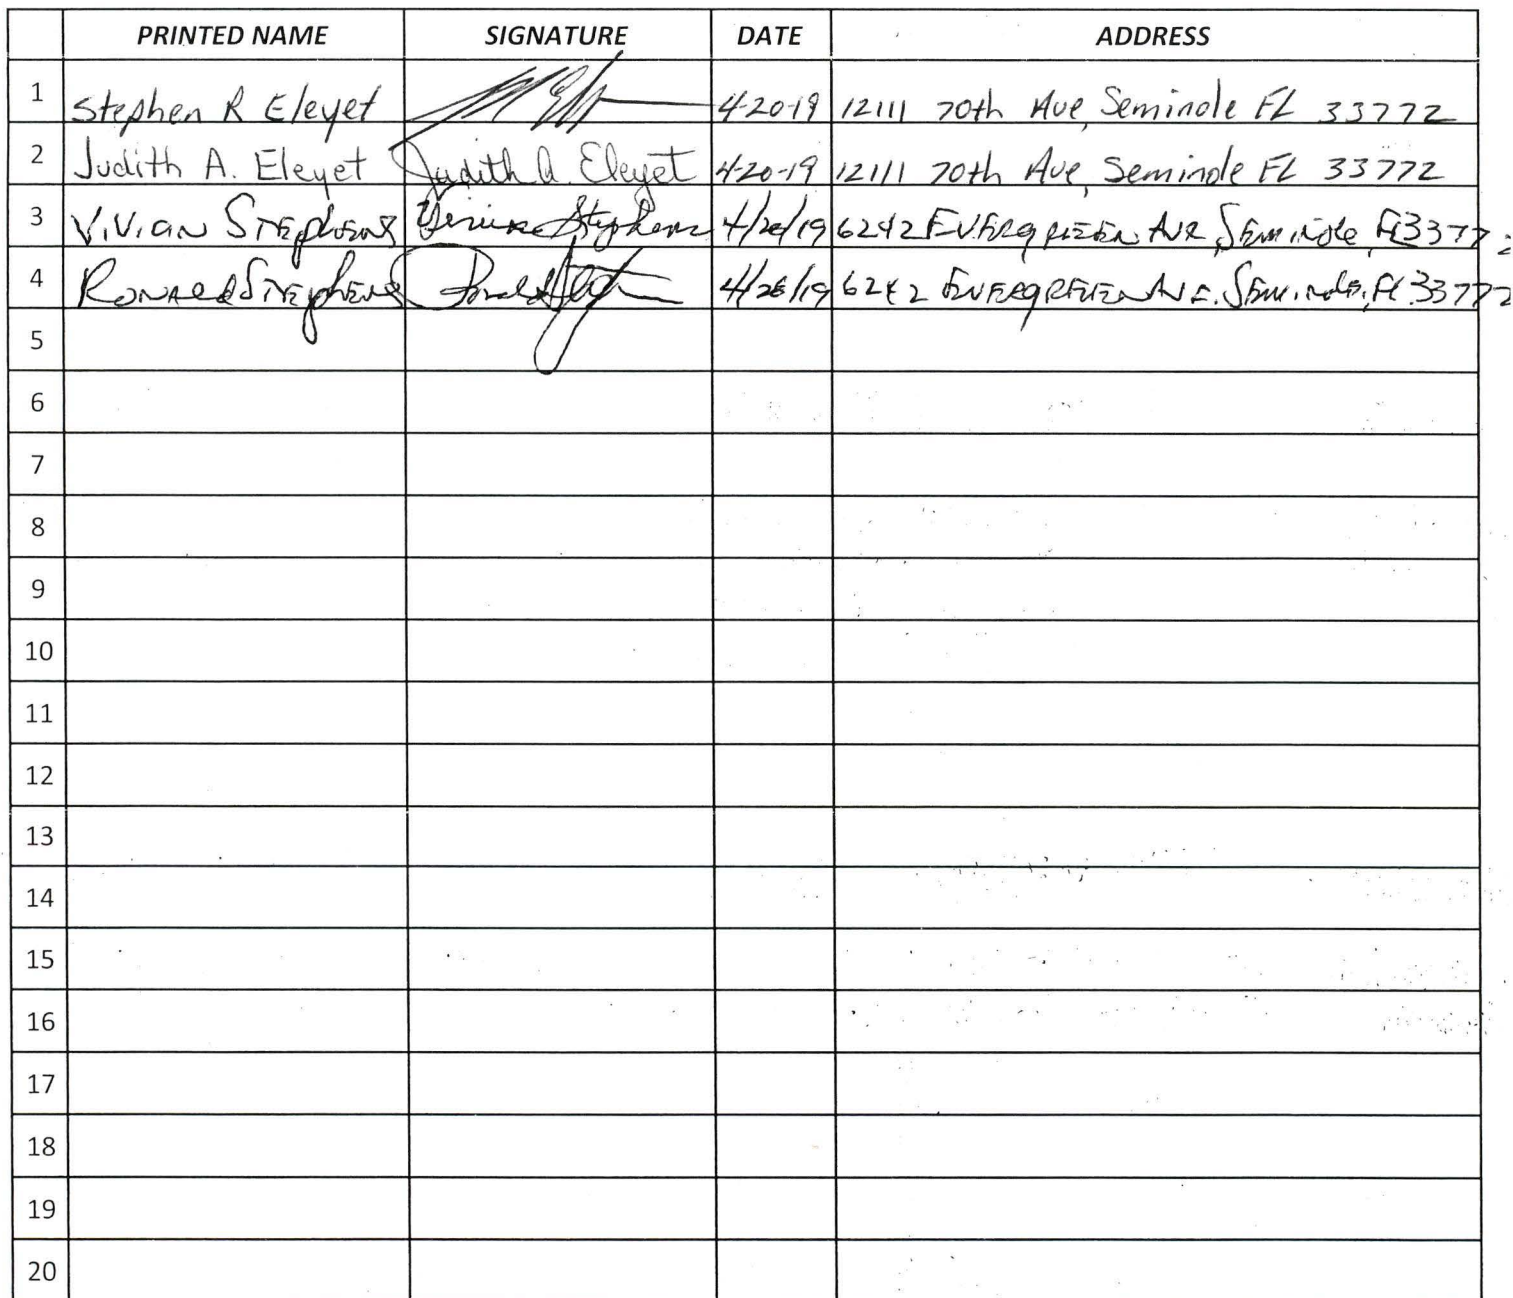 PRINTED NAME SIGNATURE DATE ADDRESS
1 Stephen R Eleyet 4-20-19 12111 70th Ave, Seminole FL 33772
2 Judith A. Eleyet Judith A. Eleyet 4-20-19 12111 70th Ave, Seminole FL 33772
3 Vivian Stephens Stephens 6242 Evergreen Ave, Seminole, Fl 33772
4 Ronald Stephens 6242 Evergreen Ave. Seminole, Fl. 33772
5
6
7
8
9
10
11
12
13
14
15
16
17
18
19
20